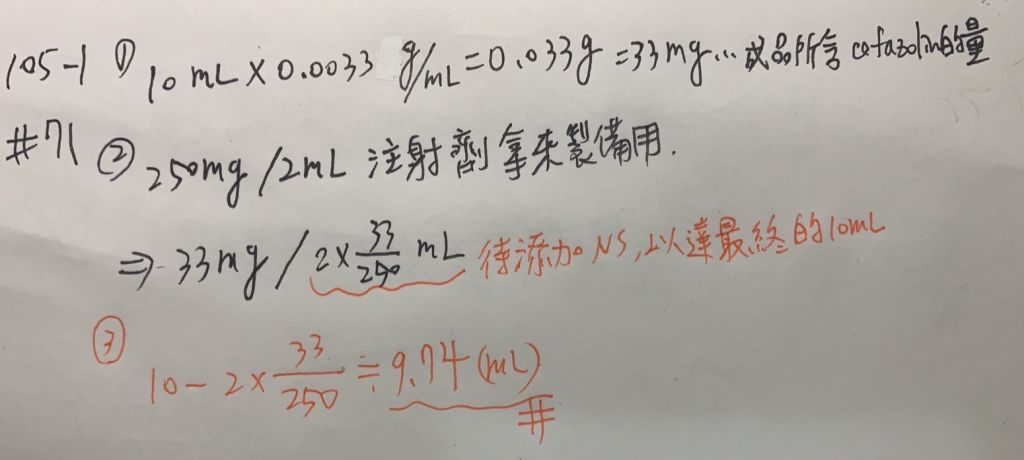 105-1 ① 10 mL × 0.0033 g/mL = 0.033g = 33mg… 成品所含 cefazolin的量
#71 ② 250mg /2mL 注射劑拿來製備用.
⇒ 33mg / 2×33/250 mL 待添加NS,以達最終的10mL
③ 10 - 2×33/250 ≒ 9.74 (mL) #